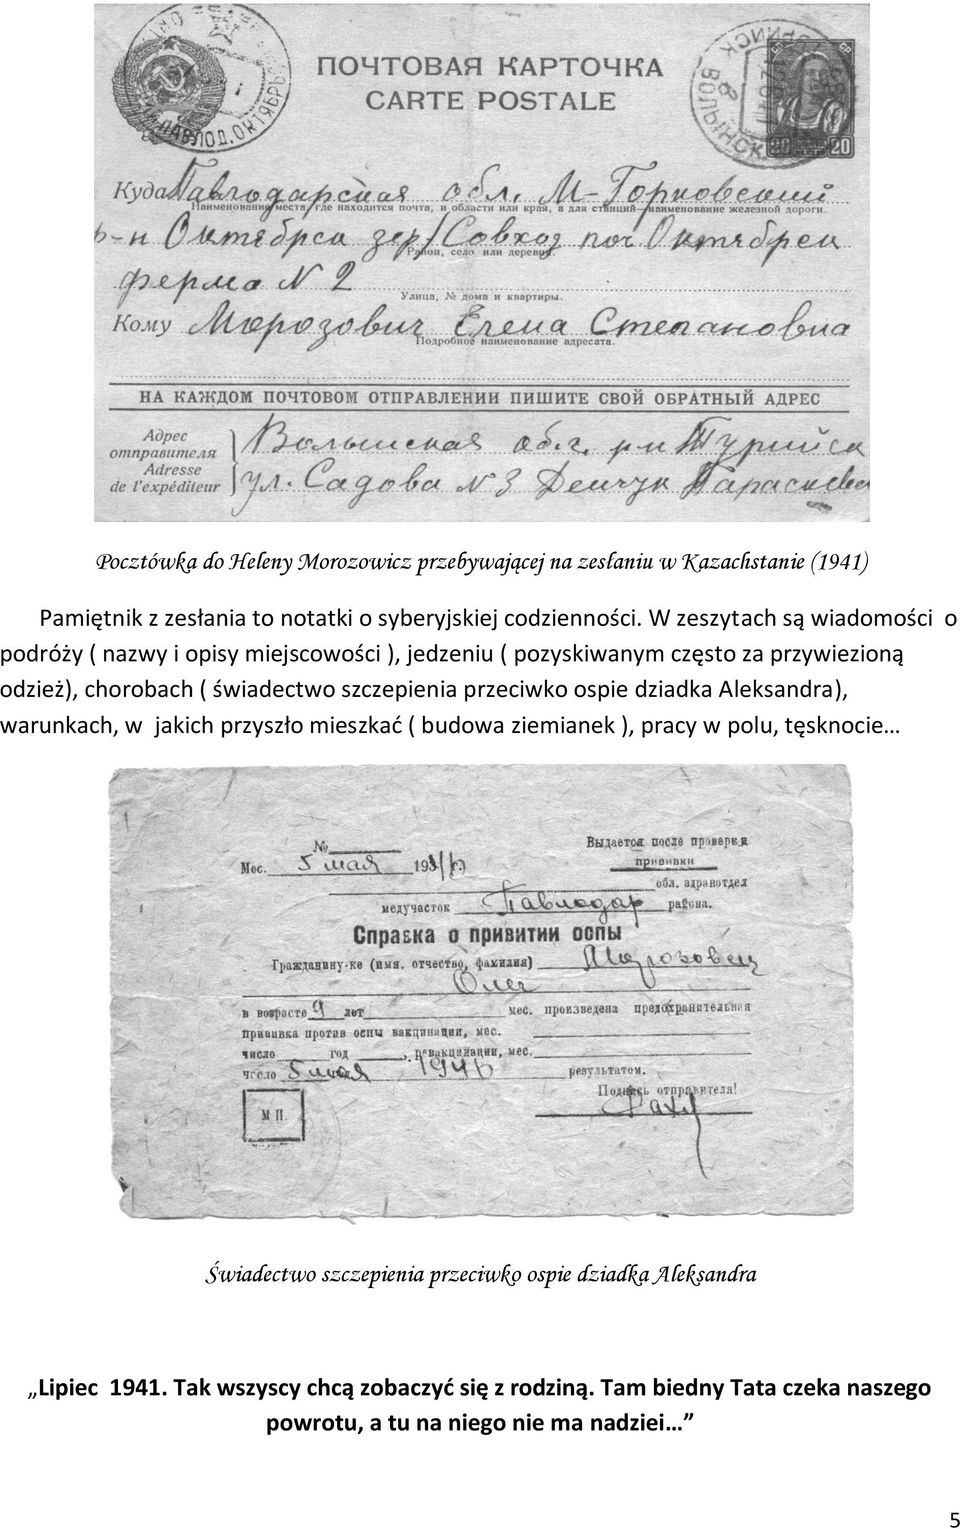 ПОЧТОВАЯ КАРТОЧКА
CARTE POSTALE
20 20
Куда Павлодарская обл. М-Горковский
Наименование места, где находится почта, и области или края, а для станций—наименование железной дороги.
р-н Октябрск зер/Совхоз поч. Октябрск
Район, село или деревня.
ферма N 2
Улица, № дома и квартиры.
Кому Морозович Елена Степановна
Подробное наименование адресата.
НА КАЖДОМ ПОЧТОВОМ ОТПРАВЛЕНИИ ПИШИТЕ СВОЙ ОБРАТНЫЙ АДРЕС
Адрес отправителя
Adresse de l'expéditeur
Волынская обл. р-н Турийск
ул. Садова N 3 Демчук
Pocztówka do Heleny Morozowicz przebywającej na zesłaniu w Kazachstanie (1941)
Pamiętnik z zesłania to notatki o syberyjskiej codzienności. W zeszytach są wiadomości o
podróży ( nazwy i opisy miejscowości ), jedzeniu ( pozyskiwanym często za przywiezioną
odzież), chorobach ( świadectwo szczepienia przeciwko ospie dziadka Aleksandra),
warunkach, w jakich przyszło mieszkać ( budowa ziemianek ), pracy w polu, tęsknocie…
№
Выдается после проверки
прививки
Мес. 5 мая
обл. здравотдел
медучасток Павлодар района.
Справка о привитии оспы
Гражданину-ке (имя, отчество, фамилия)
Олег
в возрасте 9 лет мес. произведена предохранительная
прививка против оспы вакцинации, мес.
число год , ревакцинации, мес.
число 5 мая 1946 результатом.
Подпись отправителя!
М П.
Świadectwo szczepienia przeciwko ospie dziadka Aleksandra
„Lipiec 1941. Tak wszyscy chcą zobaczyć się z rodziną. Tam biedny Tata czeka naszego
powrotu, a tu na niego nie ma nadziei…”
5